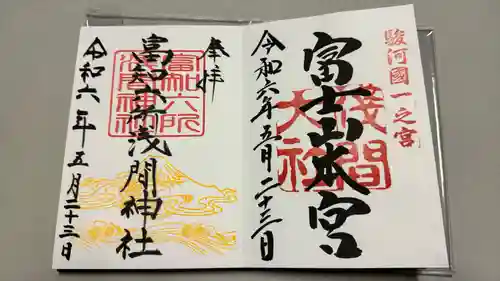 駿河國一之宮
富士山本宮
浅間大社
令和六年五月二十三日
奉拝
富知六所浅間神社
富知六所浅間神社
令和六年五月二十三日